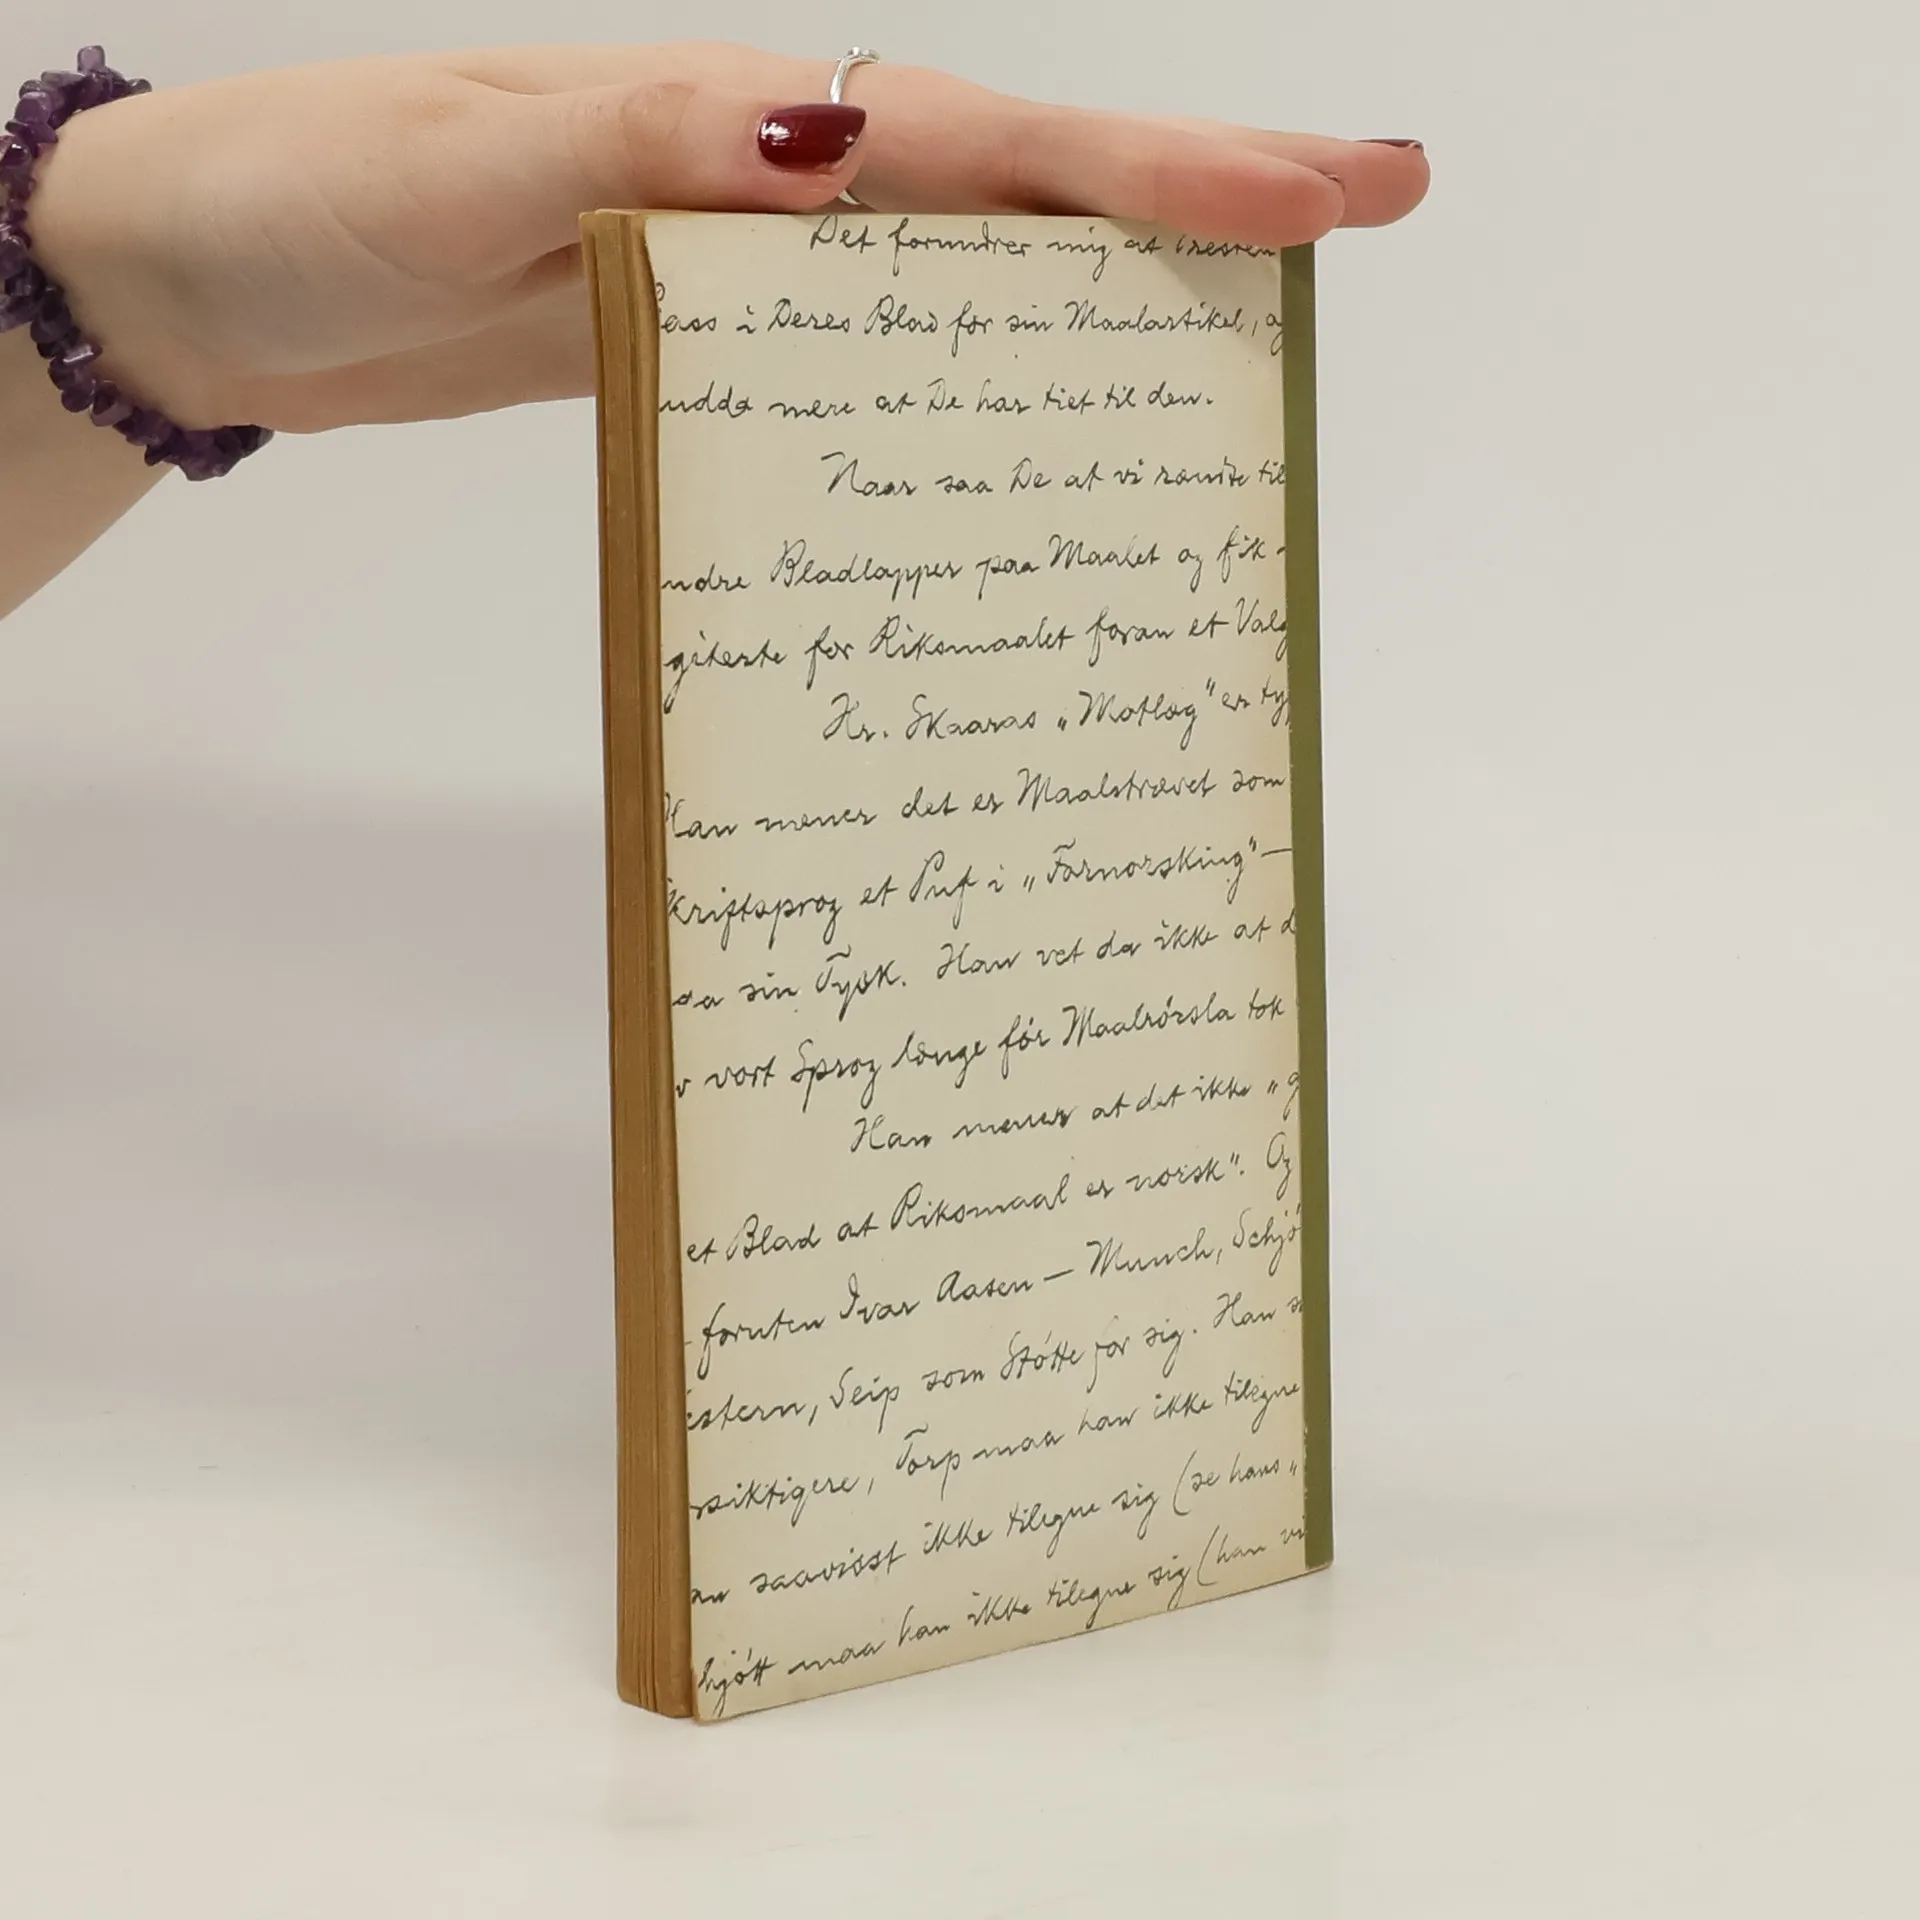 Det forundrer mig at Presten
Plass i Deres Blad for sin Maalartikel, og
udda mere at De har tiet til den.
Naar saa De at vi rændte til
ndre Bladlapper paa Maalet og fik -
giterte for Riksmaalet foran et Valg
Hr. Skaaras „Motlæg" er ty
Han mener det er Maalstrævet som
kriftsprog et Puf i „Fornorsking" —
aa sin Tysk. Han vet da ikke at d
v vort Sprog længe för Maalrörsla tok
Han mener at det ikke „g
et Blad at Riksmaal er norsk". Og
- foruten Ivar Aasen — Munch, Schjö
estern, Seip som Stötte for sig. Han s
rsiktigere, Torp maa han ikke tilegne
an saavisst ikke tilegne sig (se hans „
hjött maa han ikke tilegne sig (han vi